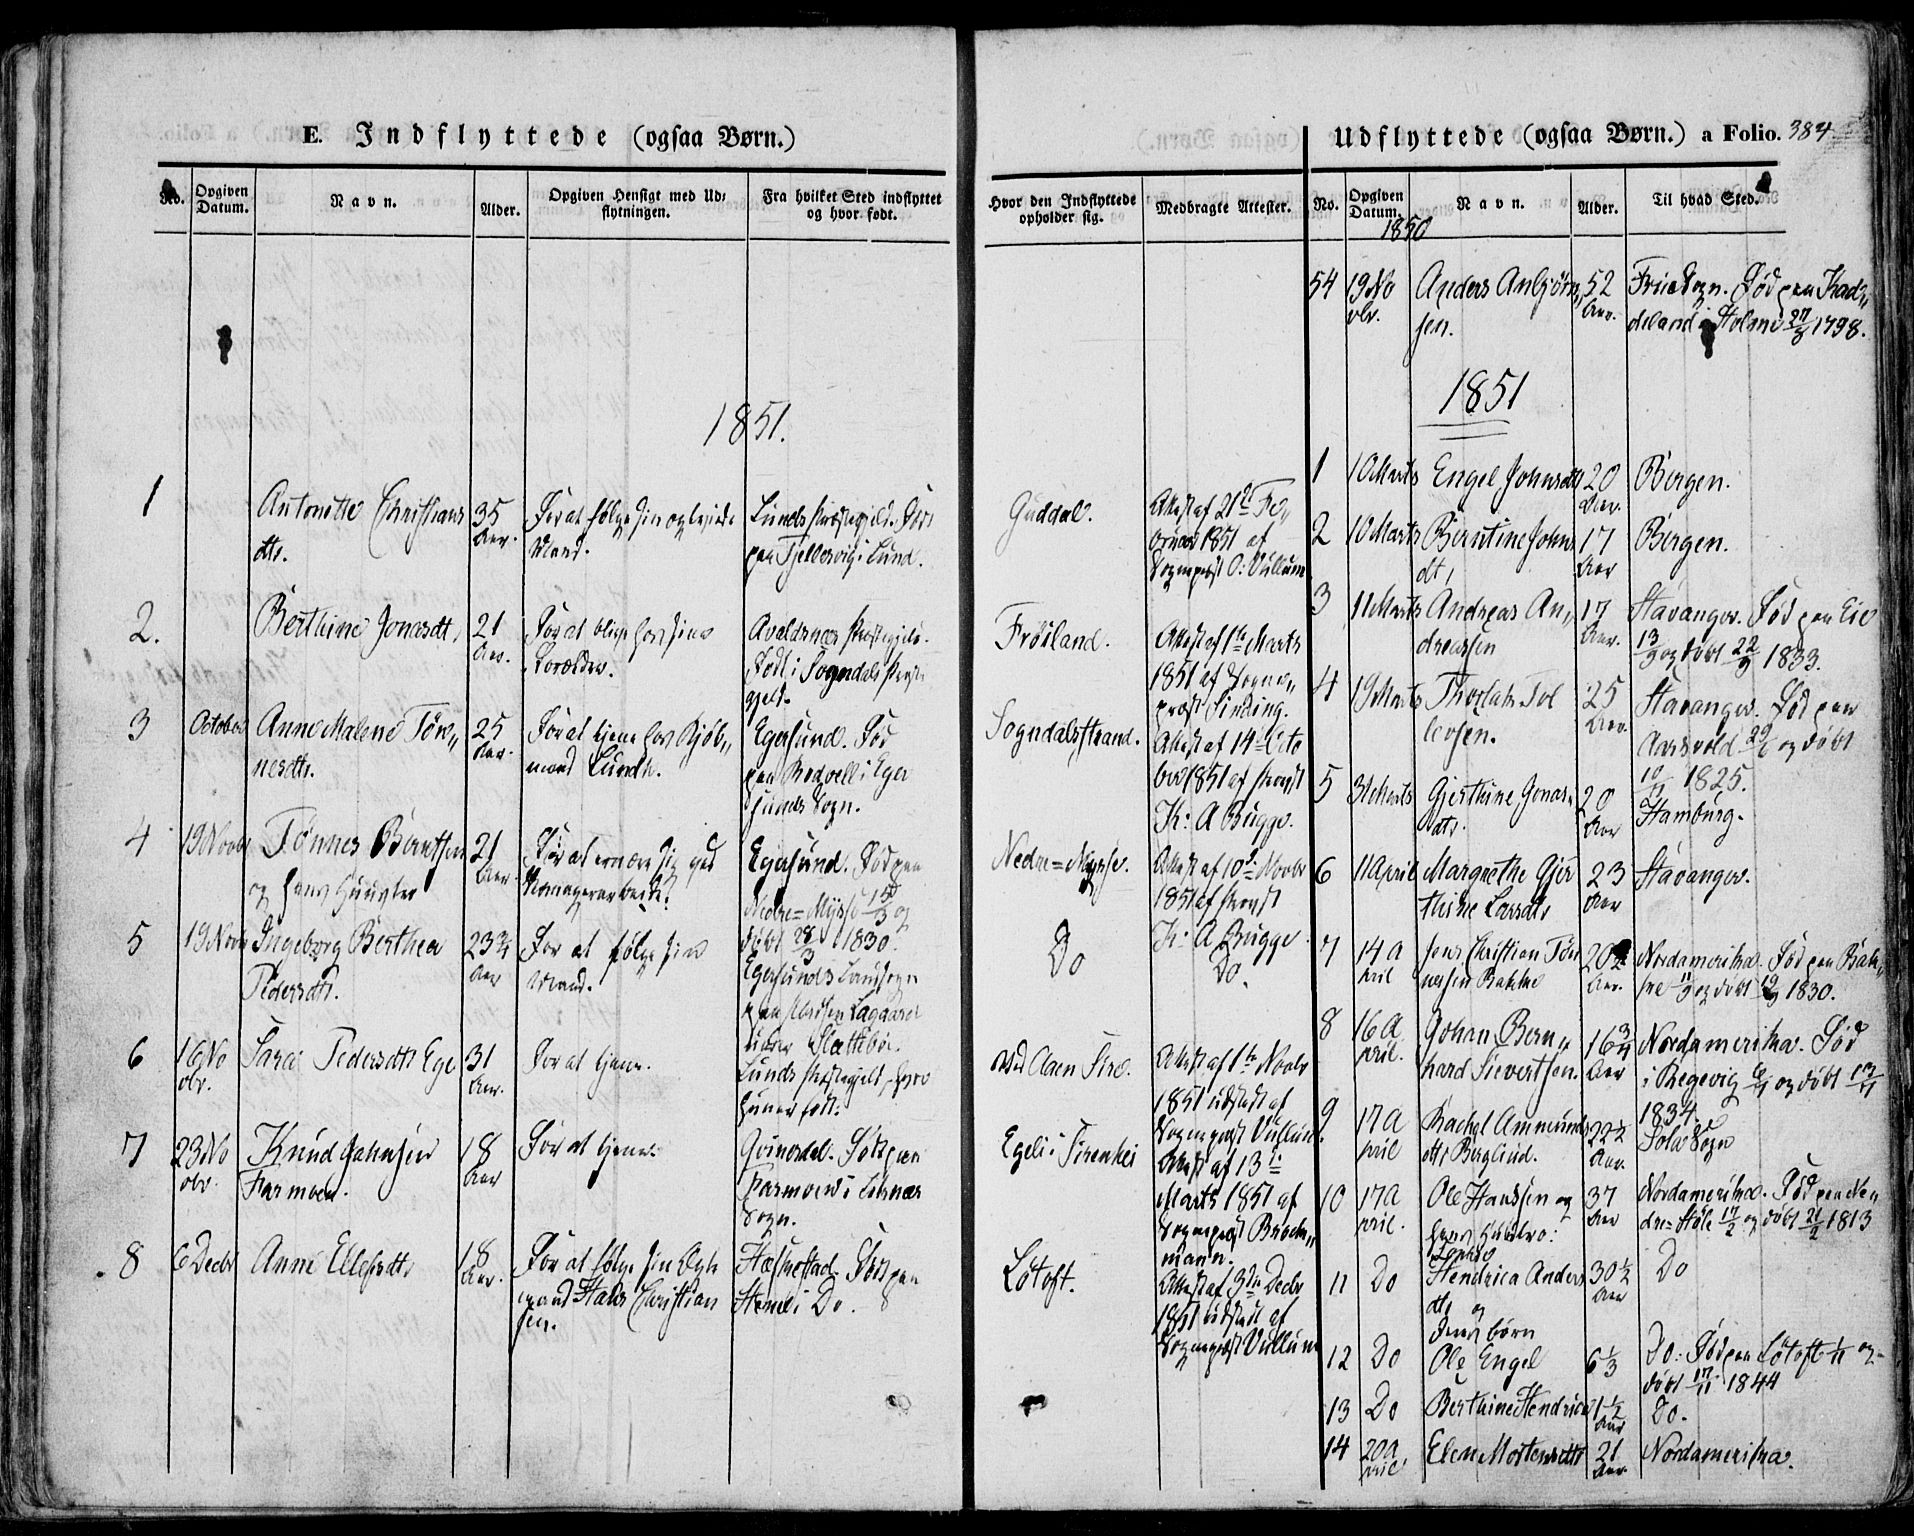 E. Indflyttede (ogsaa Børn.)
No.
Opgiven Datum.
Navn.
Alder.
Opgiven Hensigt med Ud-
flytningen.
Fra hvilket Sted indflyttet
og hvor født.
Hvor den Indflyttede
opholder sig.
Medbragte Attester.
1851.
1
Antonette Christians
dtr.
35
Aar.
For at følge sin
Mand.
Lunds Præstegjeld. Født
paa i Lund.
Guddal.
Attest af 21de Fe-
bruar 1851 af
Sognepræst O: Vullum
2.
Berthine Jonasdtr
21
Aar.
For at blive hos sine
Forældre.
Avaldsnæs Præstegjeld.
Født i Sogndals Præste
gjeld.
Frøiland.
Attest af 1te Marts
1851 af Sogne-
præst Sinding.
3
October
Anne Malene Tøn-
nesdtr.
25
Aar.
For at tjene hos Kjøb-
mand Lund.
Egersund. Fød
paa i Eger
sunds Sogn.
Sogndalsstrand.
Attest af 14de Octo
ber 1851 af Provst
K: A Bugge.
4
19 Novbr
Tønnes Berntsen
og hans Hustru
21
Aar.
For at ernære sig ved
Egersund. Fød paa
Nedre=Mysse 15/3 og
døbt 28/3 1830.
Nedre=Mysse.
Attest af 10de Novbr
1851 af Provst
K: A Bugge.
5
19 Novbr
Ingeborg Berthea
Pedersdtr.
23 3/4
Aar
For at følge sin
Mand.
Egersunds Landsogn
paa Lagaard
under Slettebø.
Do
Do.
6
16 No
vbr.
Sara Pedersdtr Ege
31
Aar.
For at tjene.
Lunds Præstegjeld, hvor
hun er født.
ved Aaen Sire.
Attest af 1te Novbr
1851 udstedt af
Sognepræst Vullum.
7
23 No
vbr.
Knud Johnsen
Farmoen.
18
Aar
For at tjene.
Qvinesdal. Født paa
Farmoen i Liknæs
Sogn.
Egeli i Sirenhei
Attest af 13de
Marts 1851 af
Sognepræst Brock-
mann.
8
6 Decbr
Anne Ellefsdtr
18
Aar.
For at følge sin Egte
mand Hans Christian
sen.
Hæskestad. Født paa
i Do.
Løtoft.
Attest af 3die Decbr
1851 udstedt af
Sognepræst Vullum
Udflyttede (ogsaa Børn.) a Folio. 384
No.
Opgiven Datum.
Navn.
Alder.
Til hvad Sted.
1850
54
19 No
vbr.
Anders Anbjørn
sen.
52
Aar.
Sogn. Fød paa Kad-
deland i Holme 27/8 1798.
1851
1
10 Marts
Engel Johnsdtr
20
Aar.
Bergen.
2
10 Marts
Berntine Johns
dtr
17
Aar
Bergen.
3
11 Marts
Andreas An-
dreassen
17
Aar.
Stavanger. Fød paa Eie
13/9 og døbt 22/9 1833.
4
19 Marts
Thorlak Tol
levsen.
25
Aar.
Stavanger. Fød paa
Aarsvold og døbt
1825.
5
31 Marts
Gjerthine Jonas-
dtr.
20
Aar
Hamburg.
6
11 April
Margrethe Gjer
thine Larsdtr
23
Aar
Stavanger.
7
14 A
pril
Jens Christian Tøn
nesen Bakke
20 1/2
Aar.
Nordamerika. Fød paa Bak-
ke 11/9 og døbt 19/9 1830.
8
16 A
pril.
Johan Bern-
hard Sievertsen.
16 3/4
Aar
Nordamerika. Fød
i Regevig og døbt
1834.
9
17 A
pril
Rachel Ammunds
dtr Berglund.
22 1/2
Aar.
Sola Sogn
10
17 A
pril.
Ole Hansen og
hans Hustro:
37
Aar
Nordamerika. Fød paa Ne-
dre=Støle 17/2 og døbt 21/2 1813
11
Do
Hendrica Anders
dtr og
30 1/2
Aar
Do
12
Do
Deres børn
Ole Engel
6 1/3
Do: Fød paa Løtoft 1/11 og
døbt 17/11 1844
13
Do
Berthine Hendrica
1 1/2
Aar
Do.
14
20 A
pril
Elen Mortensdtr
21
Aar.
Nordamerika.